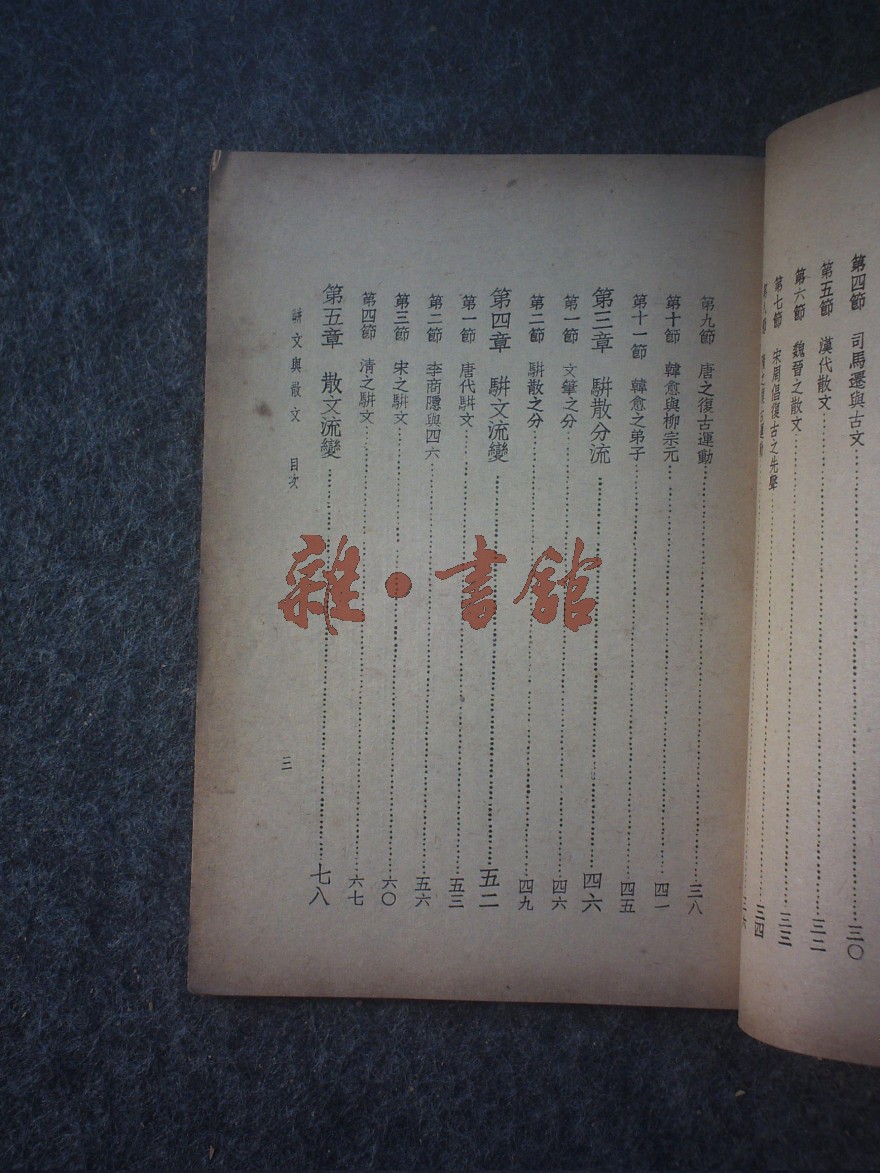 第四節 司馬遷與古文 三〇
第五節 漢代散文 三二
第六節 魏晉之散文 三三
第七節 宋周倡復古之先聲 三四
第九節 唐之復古運動 三八
第十節 韓愈與柳宗元 四二
第十一節 韓愈之弟子 四五
第三章 駢散分流 四六
第一節 文筆之分 四六
第二節 駢散之分 四九
第四章 駢文流變 五二
第一節 唐代駢文 五三
第二節 李商隱與四六 五六
第三節 宋之駢文 六〇
第四節 清之駢文 六七
第五章 散文流變 七八
駢文與散文 目次 三
雜·書館